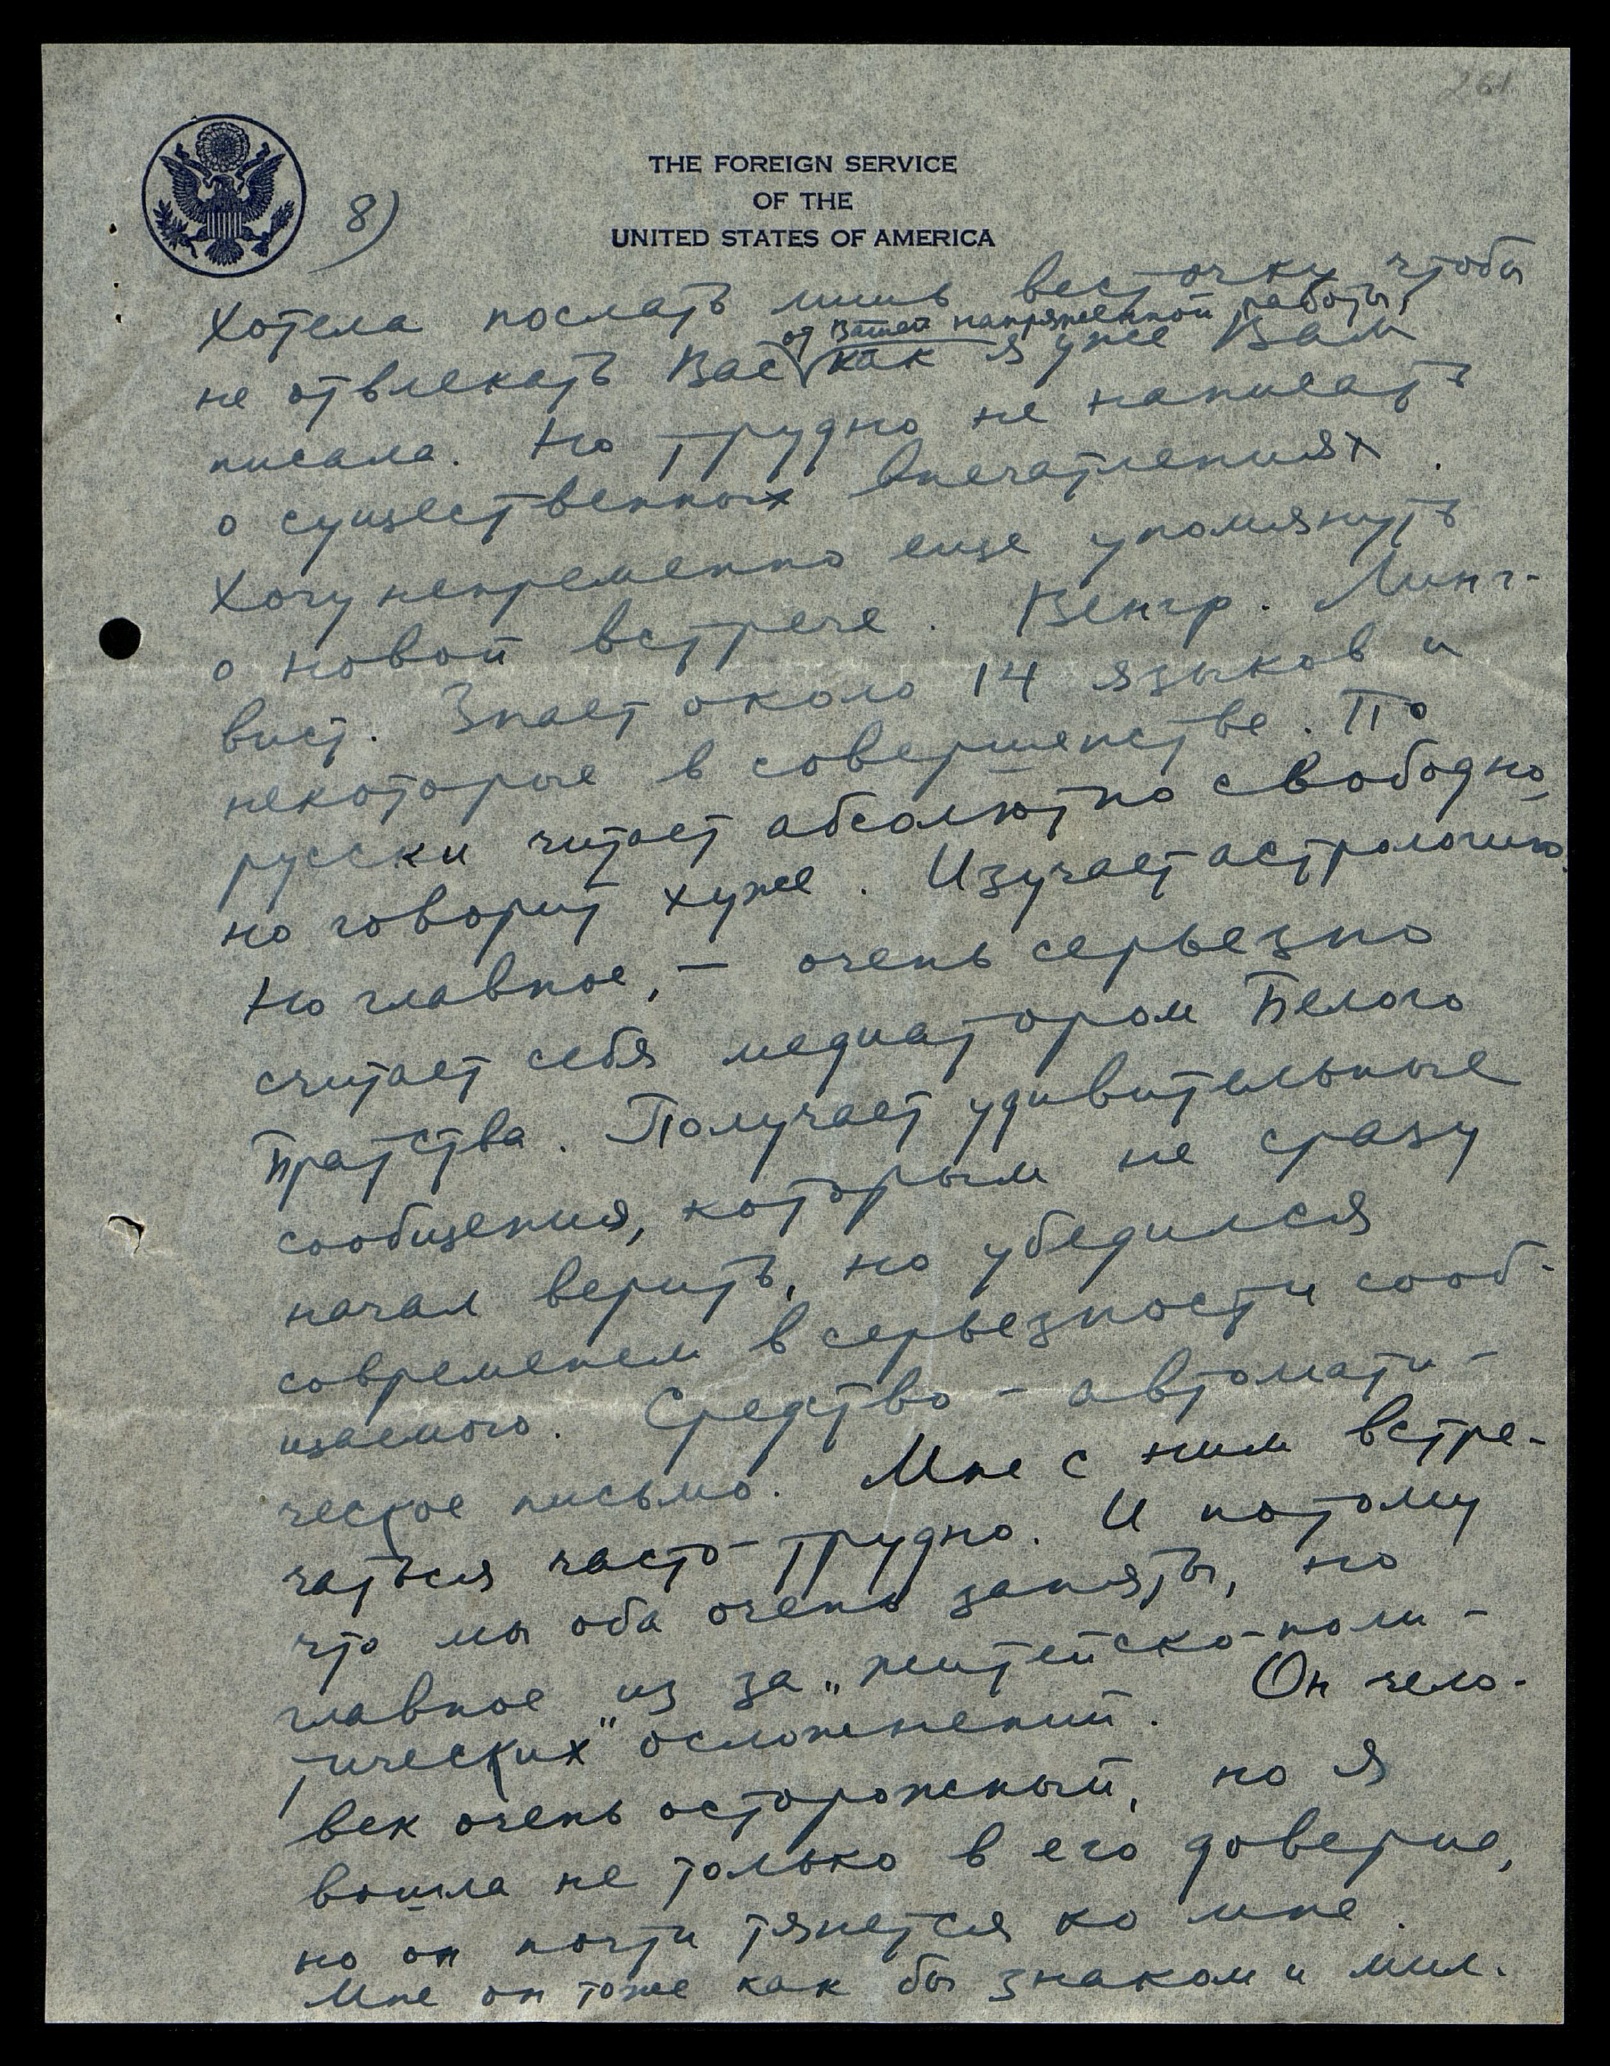 261
THE FOREIGN SERVICE
OF THE
UNITED STATES OF AMERICA
8)
Хотела послать лишь весточку чтобы
от Вашей напряженной работы,
не отвлекать Вас как я уже Вам
писала. Но трудно не написать
о существенных впечатлениях.
Хочу непременно еще упомянуть
о новой встрече. Венгр. Линг-
вист. Знает около 14 языков и
некоторые в совершенстве. По
русски читает абсолютно свободно,
но говорит хуже. Изучает астрологию.
Но главное, – очень серьезно
считает себя медиатором Белого
Братства. Получает удивительные
сообщения, которым не сразу
начал верить, но убедился
современем в серьезности сооб-
щаемого. Средство – автомати-
ческое письмо. Мне с ним встре-
чаться часто – трудно. И потому
что мы оба очень заняты, но
главное из за „житейско-поли-
тических" осложнений. Он чело-
век очень осторожный, но я
вошла не только в его доверие,
но он почти тянется ко мне.
Мне он тоже как бы знаком и мил.